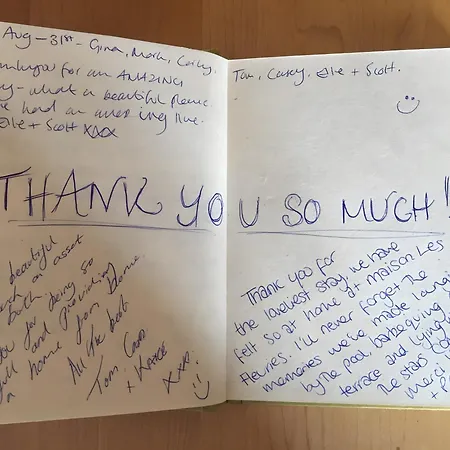 Aug - 31st - Gina, Mark, Corley,
Tom, Casey, Ollie + Scott.
for an AMAZING
what a beautiful place.
had an amazing time.
Ollie + Scott xxx
THANK YOU SO MUCH!!
beautiful
an asset
both
you for being so
and providing
a home from home.
All the best
Tom
+
xxx
Thank you for
the loveliest stay, we have
felt so at home at Maison Les
Fleuries. I'll never forget the
memories we've made lounging
by the pool, barbequing
terrace and lying
the stars
merci
+